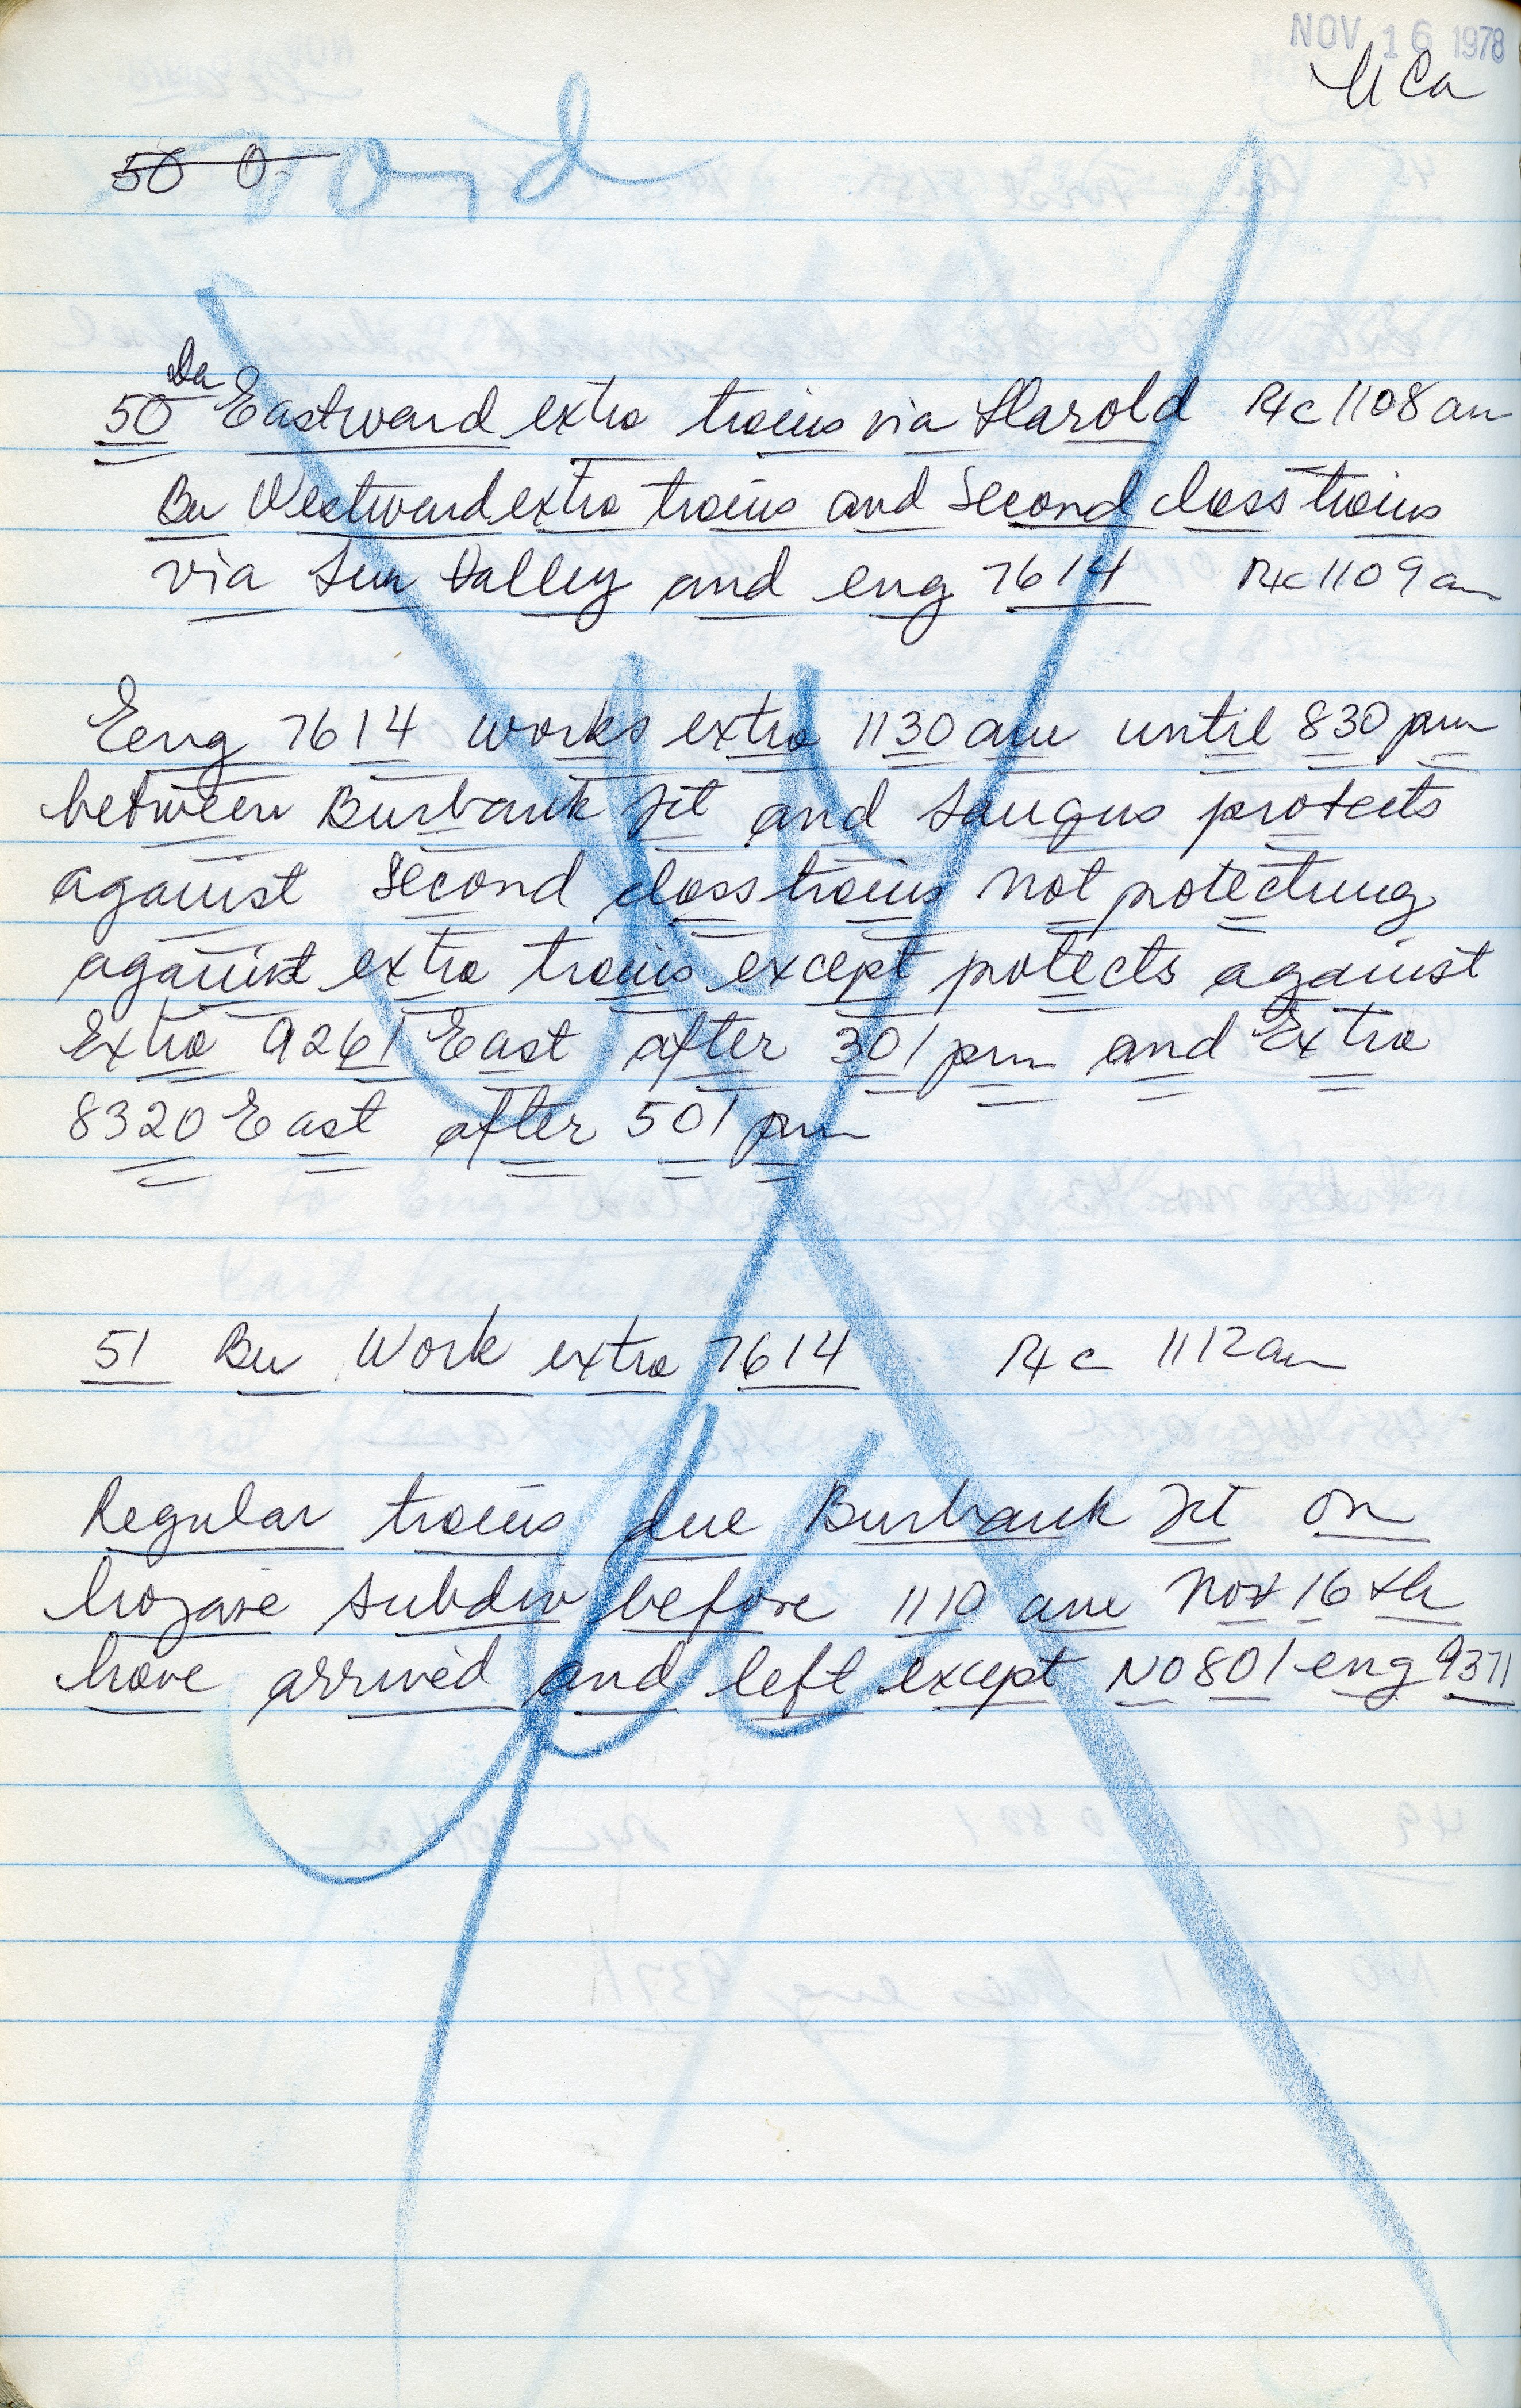 NOV 16 1978
50 O
void
Da
50 Eastward extra trains via Harold Rxc 1108 am
Bu Westward extra trains and second class trains
via Sun Valley and eng 7614 Rxc 1109 am
Eeng 7614 works extra 1130 am until 830 pm
between Burbank Jct and Saugus protects
against second class trains not protecting
against extra trains except protects against
Extra 9261 East after 301 pm and Extra
8320 East after 501 pm
51 Bu Work extra 7614 Rxc 1112 am
Regular trains due Burbank Jct on
Mojave Subdiv before 1110 am Nov 16 th
have arrived and left except No 801 eng 9371